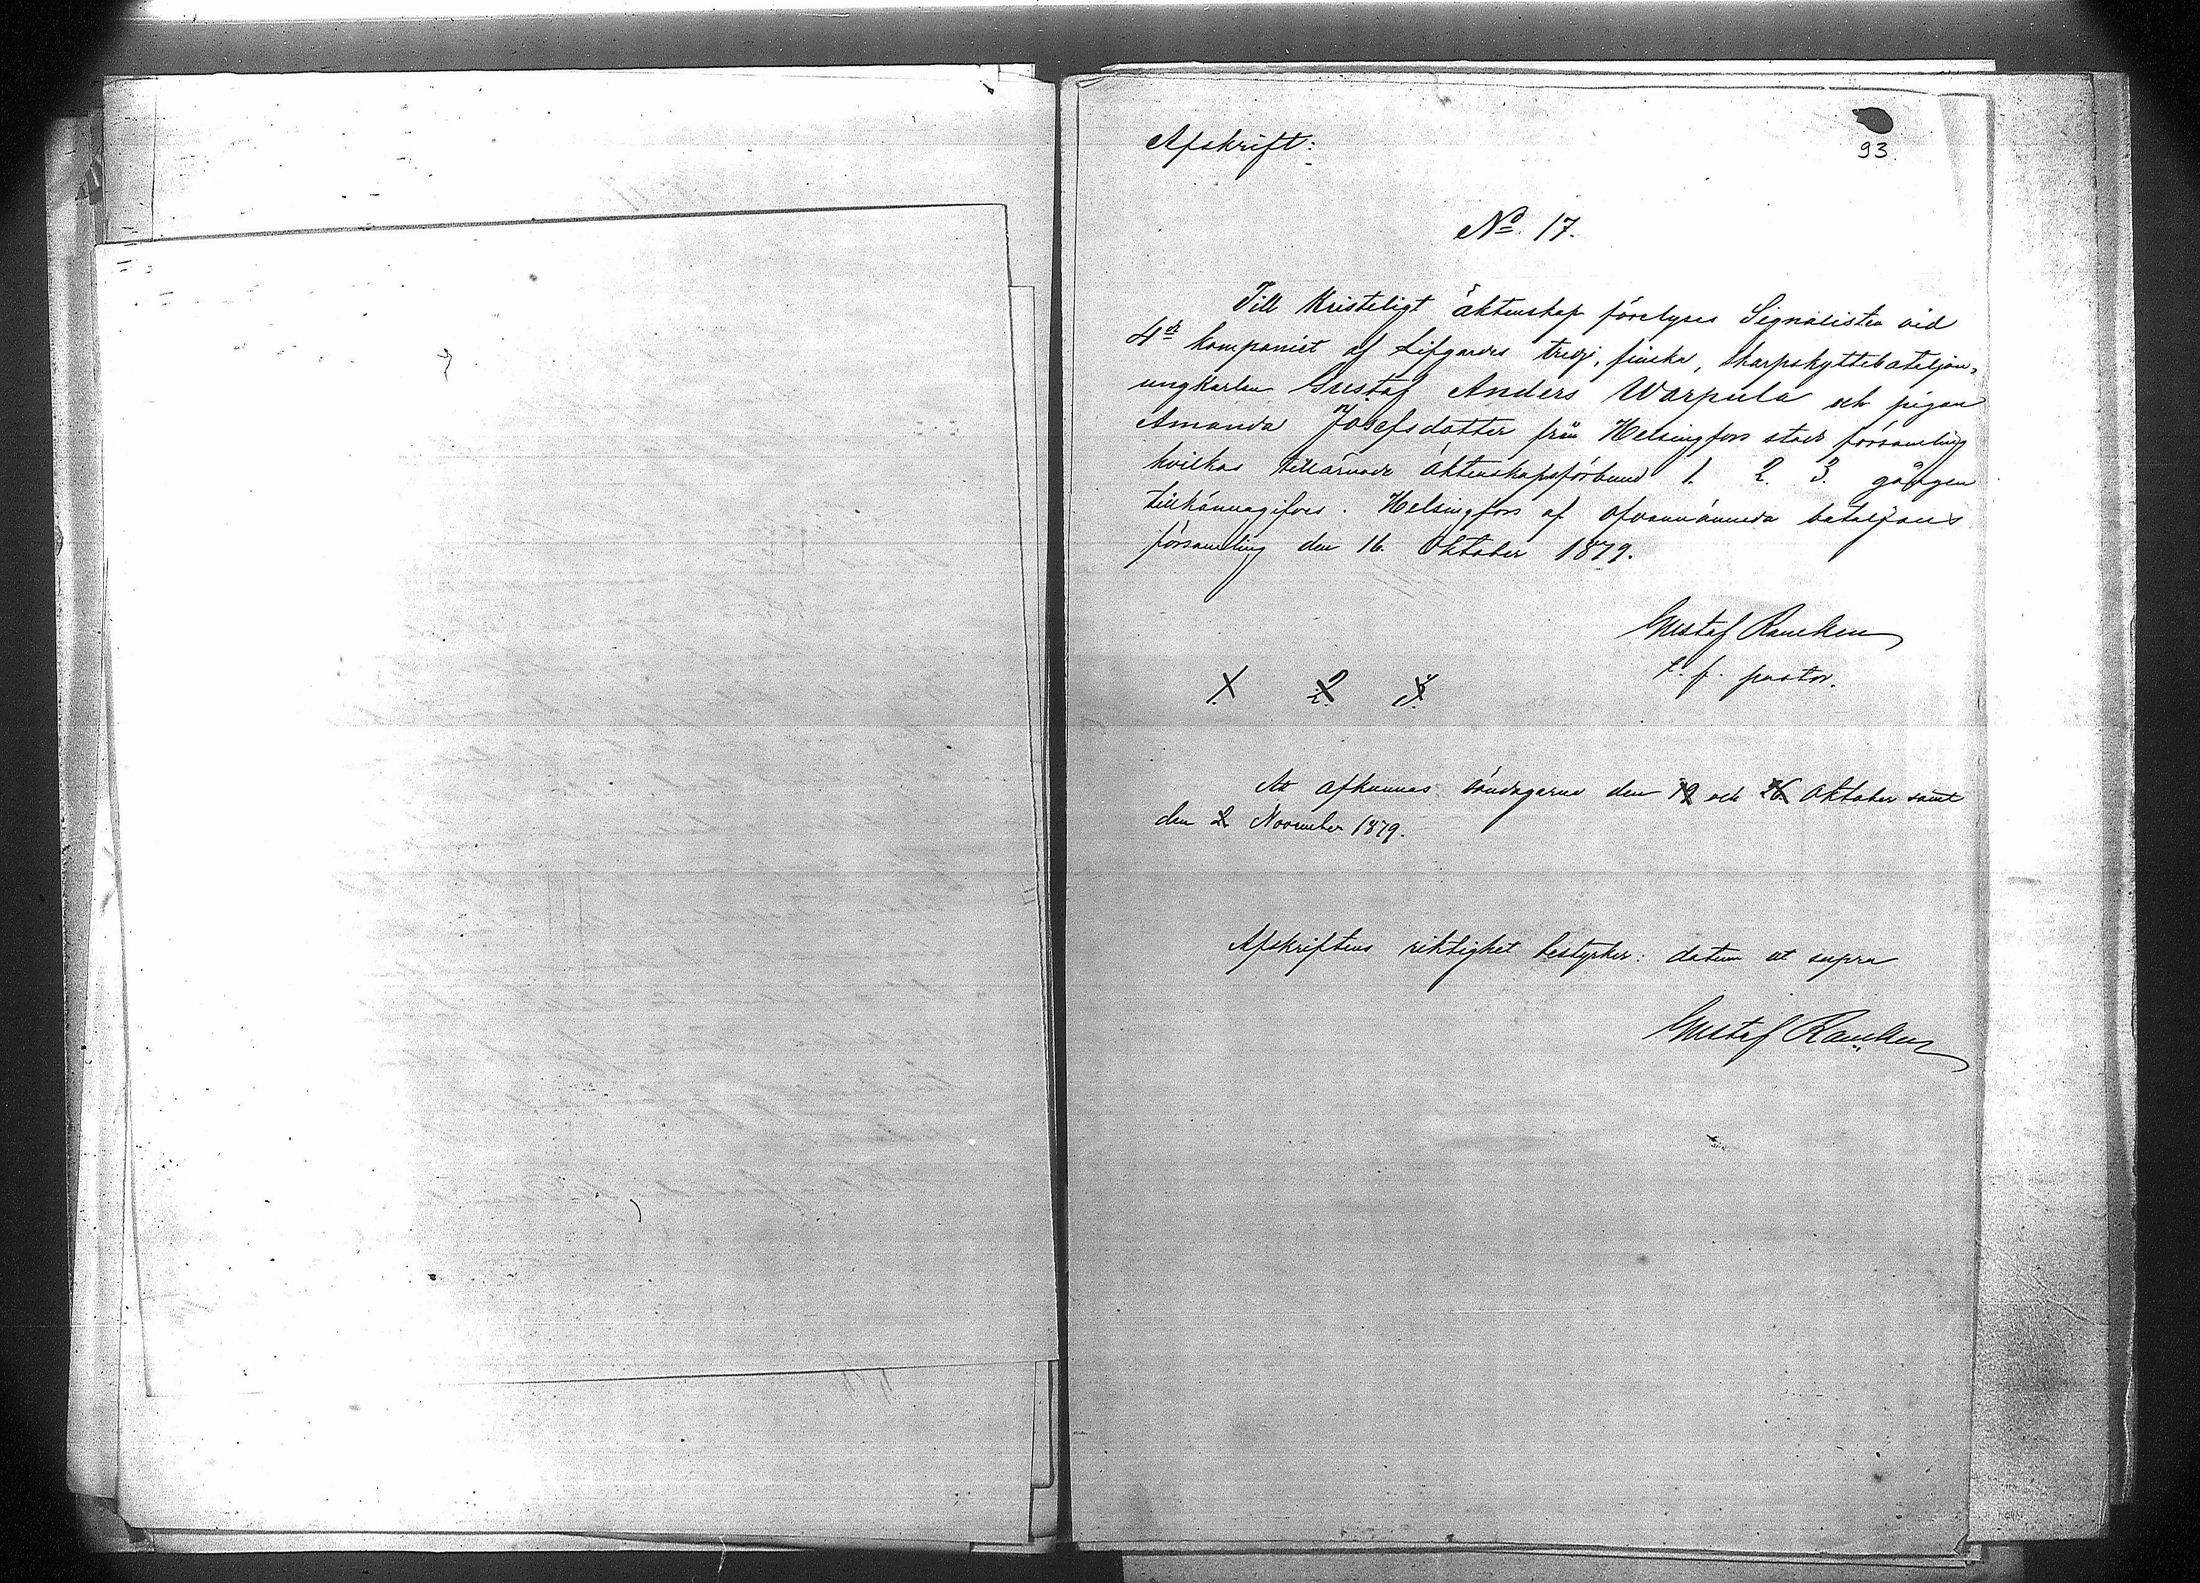 Afskrift:
93.
No 17.
Till Kristeligt äktenskap förelyses Signalisten vid
4de kompaniet af Lifgardes tredje, finska, skarpskyttebataljon,
ungkarlen Gustaf Anders Warpula och pigan
Amanda Josefsdotter från Helsingfors stads församling
hvilkas tillärnade äktenskapsförbund 1. 2. 3. gången
tillkännagifves. Helsingfors af ofvannämnda bataljons
församling den 16. Oktober 1879.
Gustaf Rancken
t. f. pastor.
1. 2. 3.
Att afkunnas söndagarne den 19 och 26 Oktober samt
den 2 November 1879.
Afskriftens riktighet bestyrker: datum ut supra
Gustaf Rancken